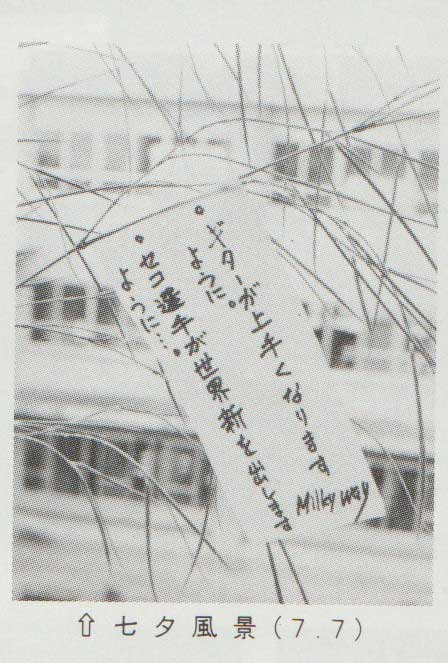 。ギターが上手くなります
ように。
。セコ選手が世界新を出します
ように…。
Milky Way
⇧七夕風景(7.7)